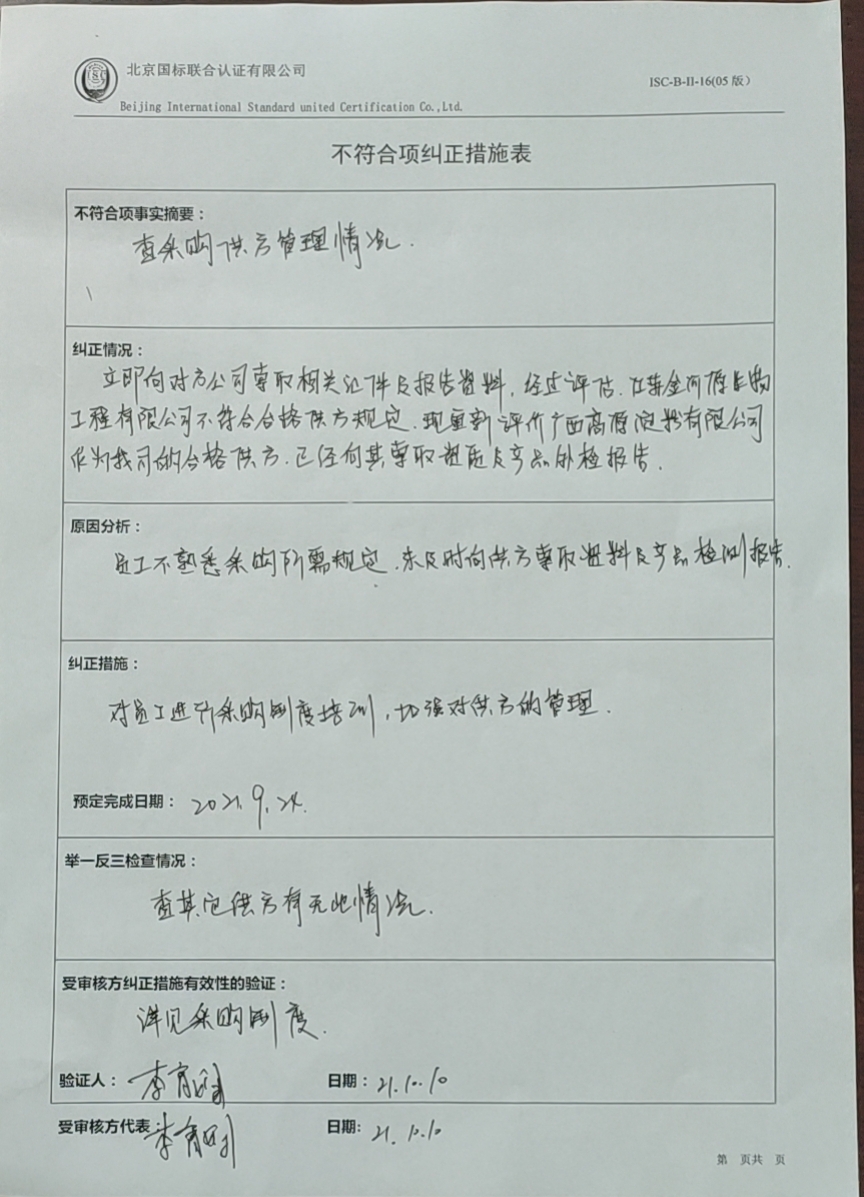 北京国标联合认证有限公司
ISC-B-II-16(05 版)
Beijing International Standard united Certification Co.,Ltd.
不符合项纠正措施表
不符合项事实摘要：
查采购供方管理情况.
纠正情况：
立即向对方公司索取相关证件及报告资料, 经过评估,
工程有限公司不符合合格供方规定. 现重新评价广西高源淀粉有限公司
作为我司的合格供方. 已经向其索取资质及产品外检报告.
原因分析：
员工不熟悉采购所需规定. 未及时向供方索取资料及产品检测报告.
纠正措施：
对员工进行采购制度培训, 加强对供方的管理.
预定完成日期： 2021.9.24.
举一反三检查情况：
查其它供方有无此情况.
受审核方纠正措施有效性的验证：
详见采购制度.
验证人： 日期： 21.10.10
受审核方代表： 日期： 21.10.10
第 页共 页